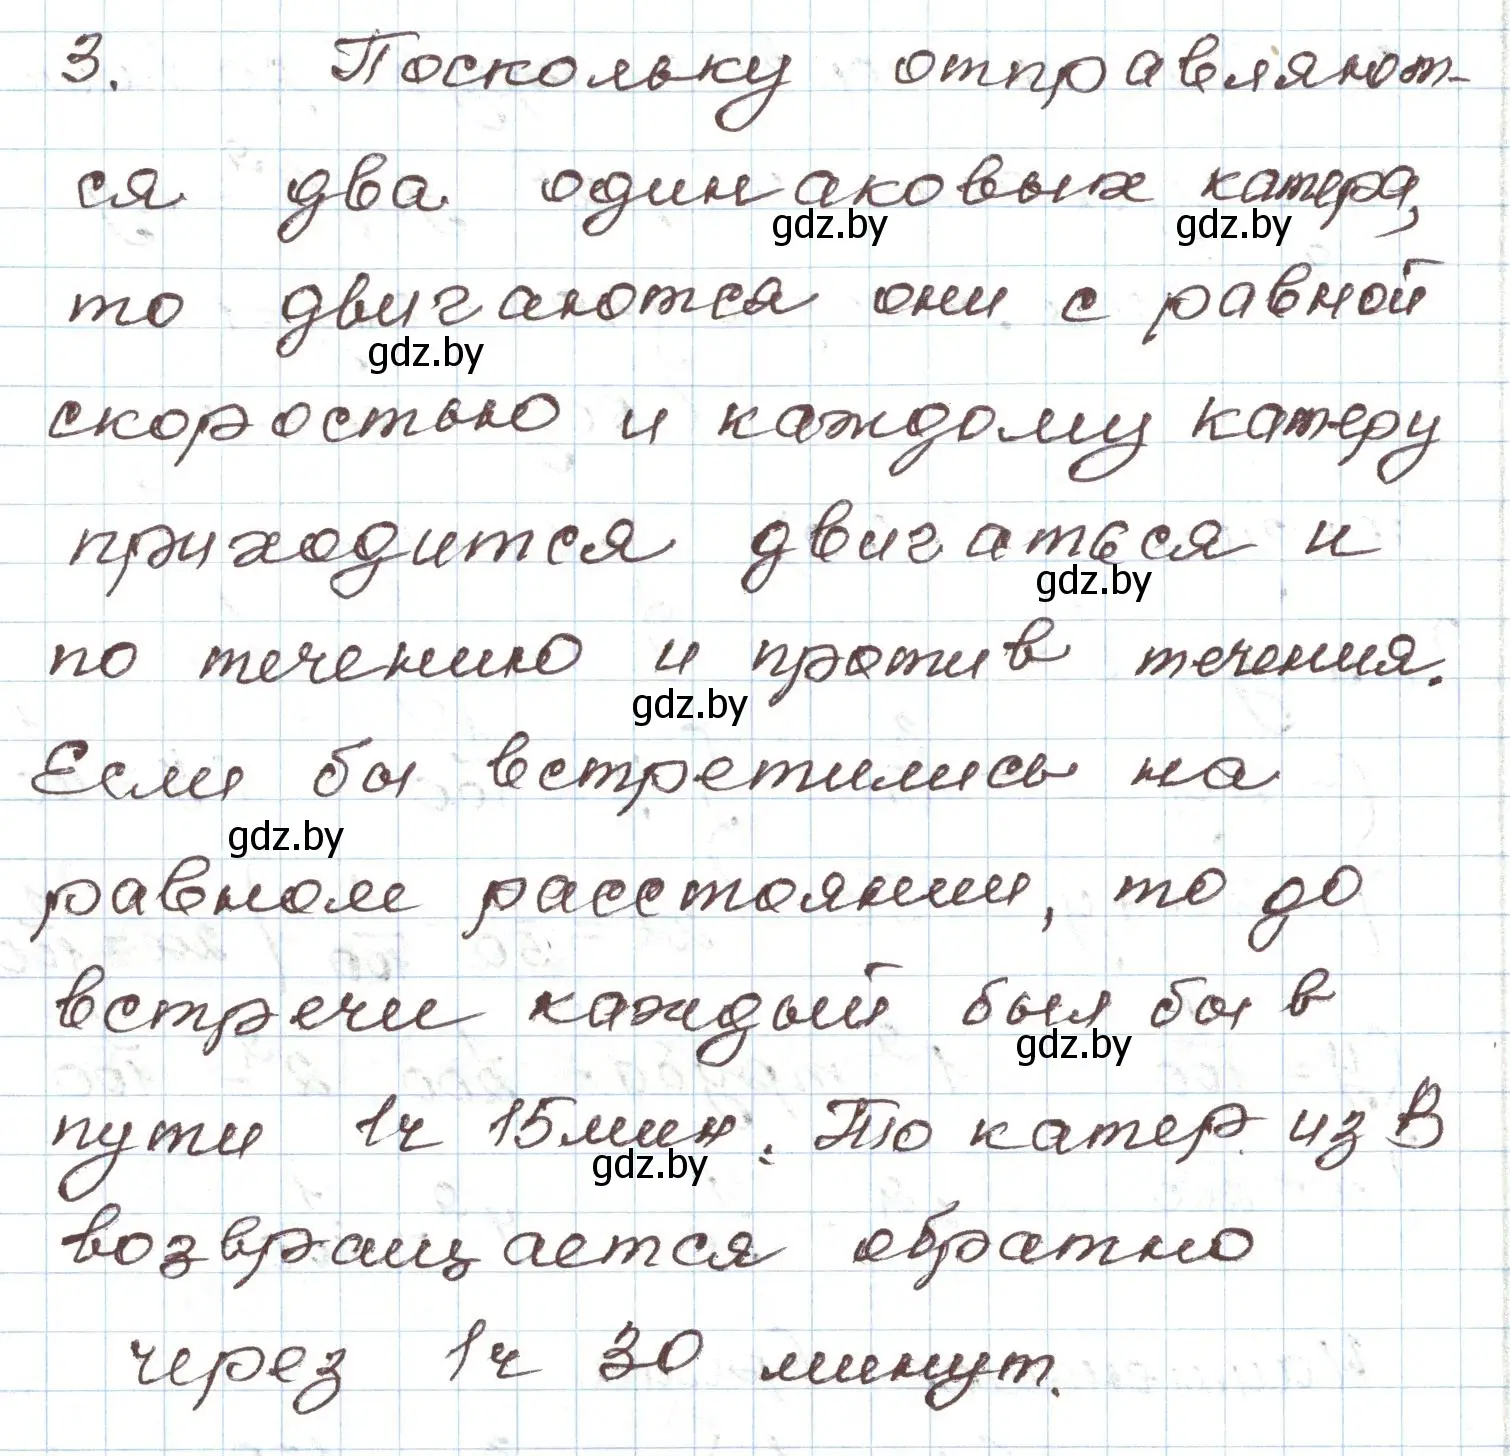 3. Поскольку отправляют-
ся два одинаковых катера,
gdz.by gdz.by
то двигаются они с равной
gdz.by
скоростью и каждому катеру
приходится двигаться и
gdz.by
по течению и против течения.
gdz.by
Если бы встретились на
gdz.by
равном расстоянии, то до
встречи каждый был бы в
gdz.by
пути 1ч 15мин. То катер из В
gdz.by
возвращается обратно
через 1ч 30 минут.